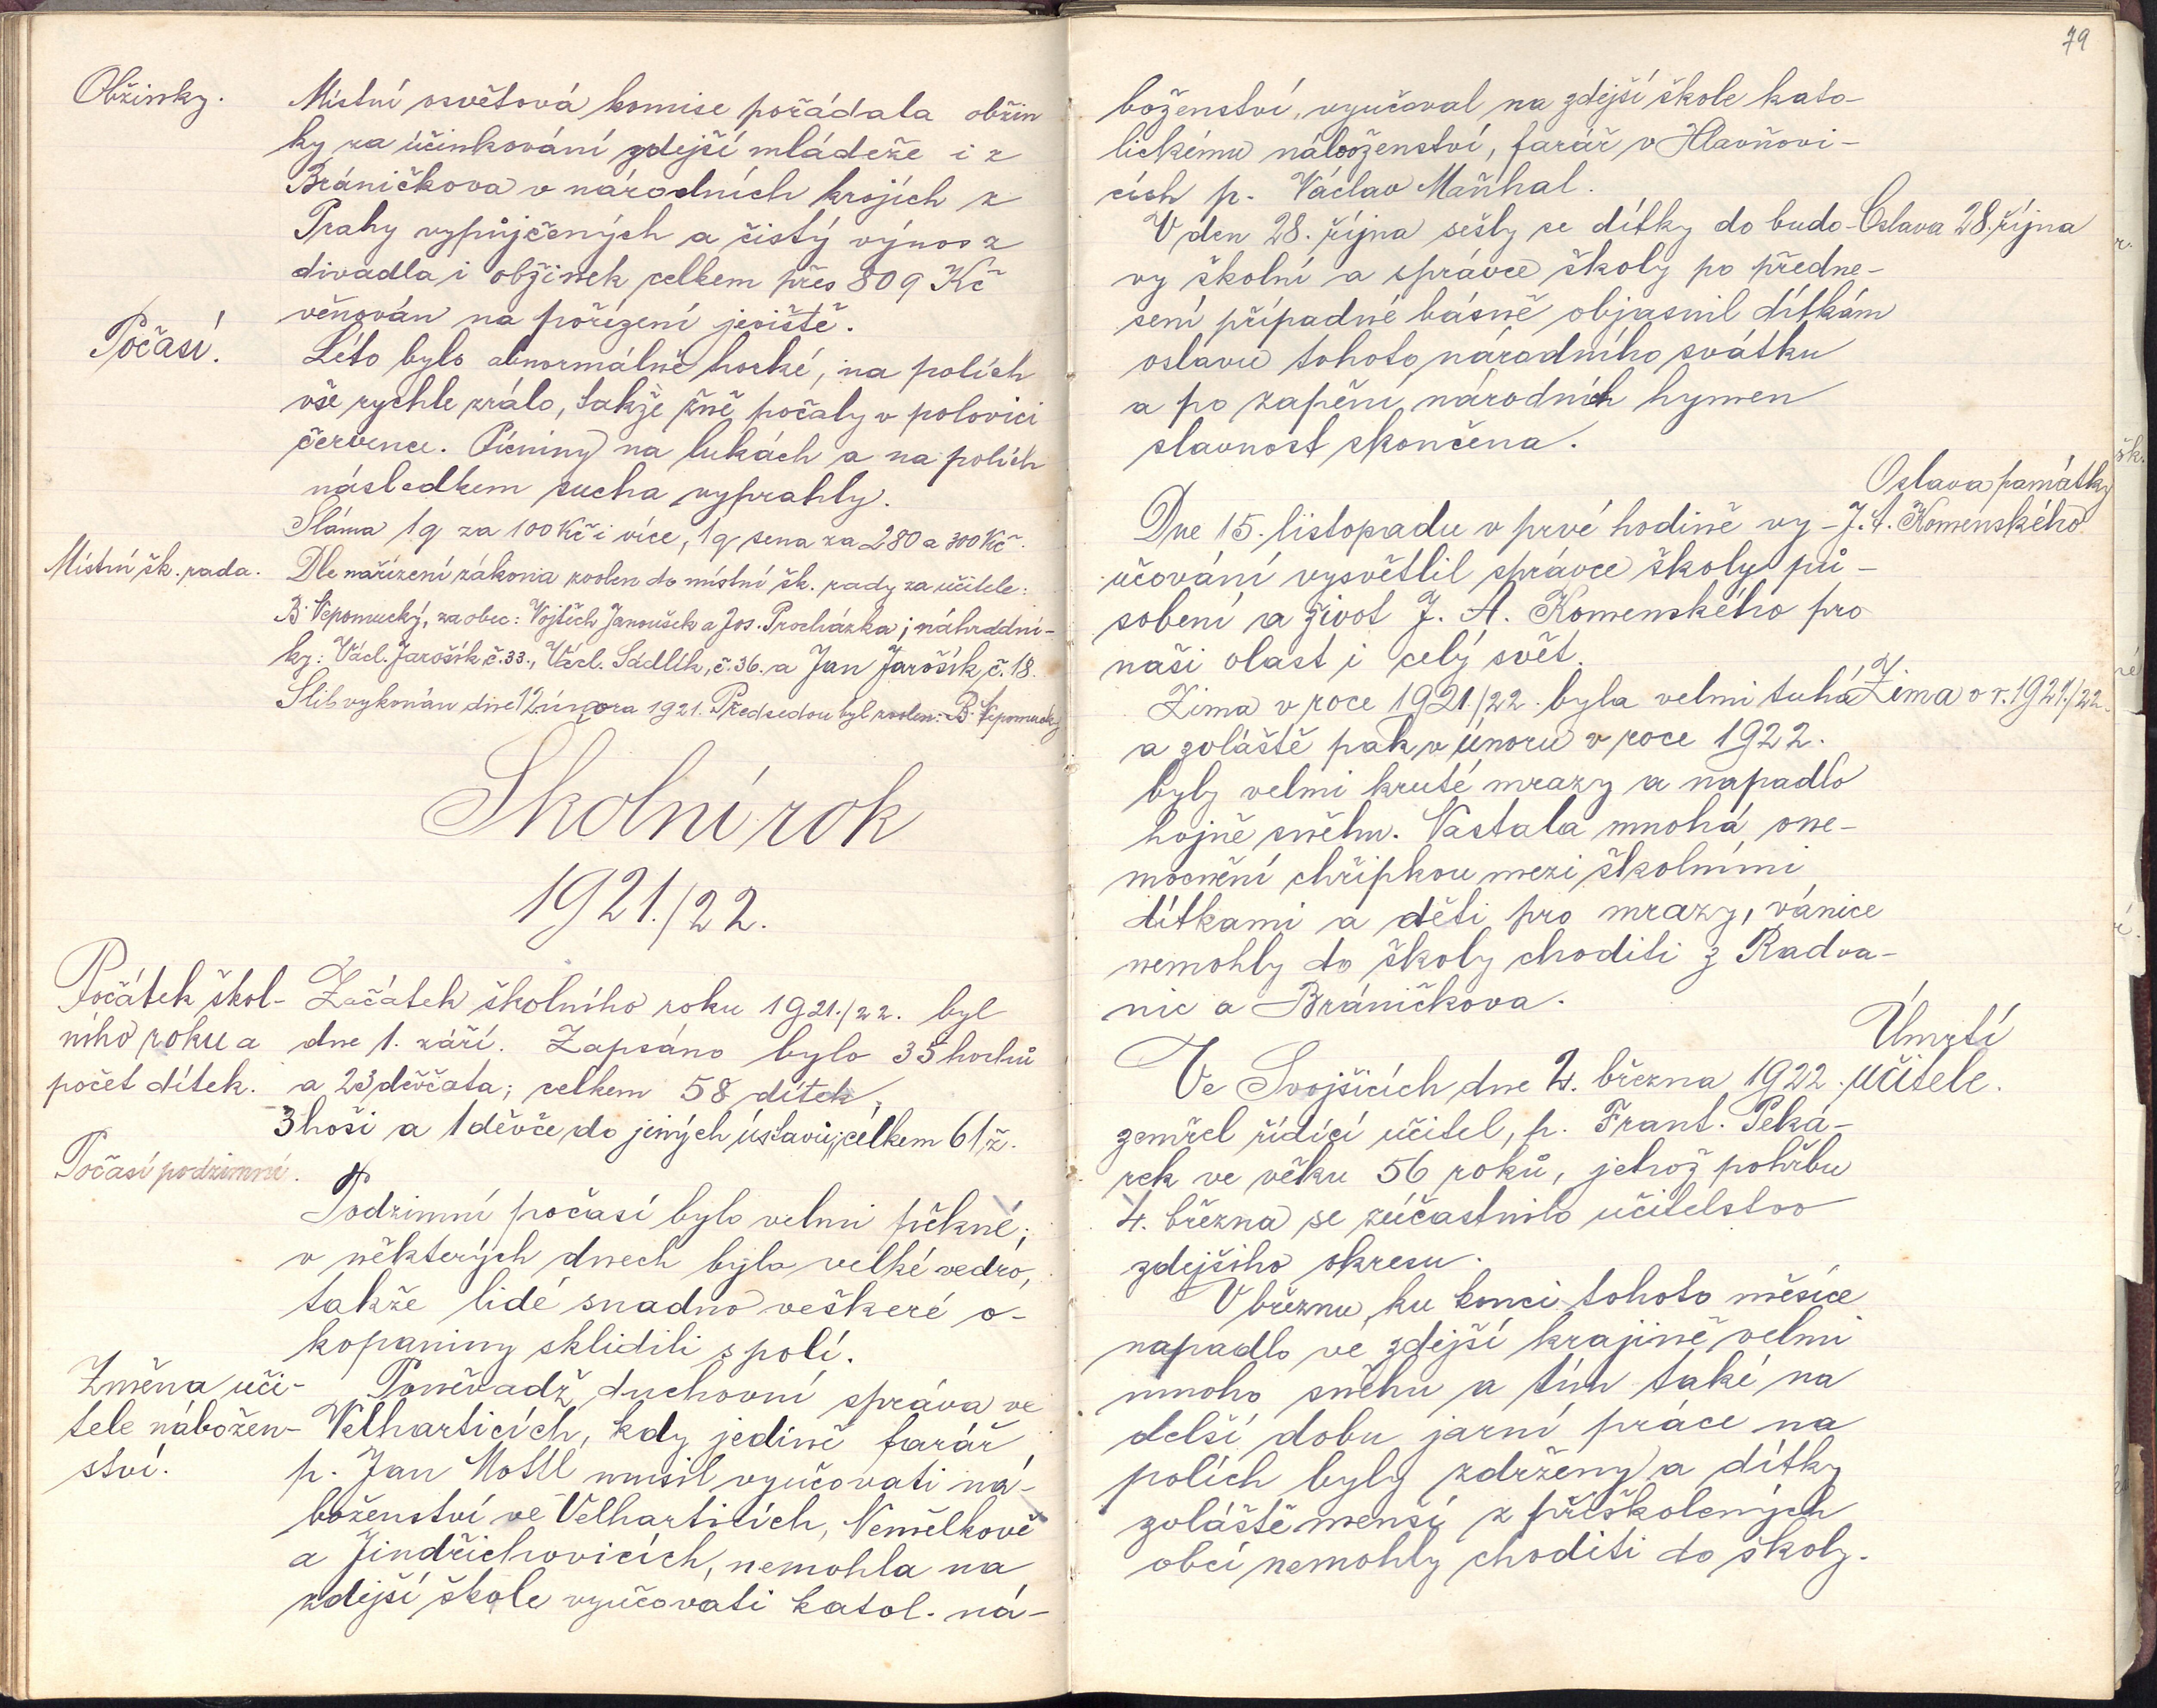 Obžinky.
Místní osvětová komise pořádala obžin
ky za účinkování zdejší mládeže i z
Bráničkova v národních krojích z
Prahy vypůjčených a čistý výnos z
divadla i obžinek celkem přes 809 Kč
věnován na pořízení jeviště.
Počasí.
Léto bylo abnormálně horké, na polích
vše rychle zrálo, takže žně počaly v polovici
července. Pícniny na lukách a na polích
následkem sucha vyprahly.
Sláma 1q za 100 Kč i více, 1q sena za 280 a 300 Kč.
Místní šk. rada.
Dle nařízení zákona zvolen do místní šk. rady za učitele:
B. Nepomucký, za obec: Vojtěch Janoušek a Jos. Procházka; náhradní-
ky: Václ. Jarošík č. 33., Václ. Sádlík, č. 36. a Jan Jarošík, č. 18.
Slib vykonán dne 12 února 1921. Předsedou byl zvolen: B. Nepomucký
Školní rok
1921./22.
Počátek škol-
ního roku a
počet dítek.
Začátek školního roku 1921./22. byl
dne 1. září. Zapsáno bylo 35 hochů
a 23 děvčata; celkem 58 dítek,
3 hoši a 1 děvče do jiných ústavů; celkem 61 ž.
Počasí podzimní.
Podzimní počasí bylo velmi pěkné;
v některých dnech byla velké vedro,
takže lidé snadno veškeré o-
kopaniny sklidili s polí.
Změna uči-
tele nábožen-
ství.
Poněvadž duchovní správa ve
Velharticích, kdy jedině farář
p. Jan Mottl musil vyučovati ná-
boženství ve Velharticích, Nemělkově
a Jindřichovicích, nemohla na
zdejší škole vyučovati katol. ná-
79
boženství, vyučoval na zdejší škole kato-
lickému náboženství, farář v Hlavňovi-
cích p. Václav Maňhal.
Oslava 28. října
V den 28. října sešly se dítky do budo-
vy školní a správce školy po předne-
sení případné básně objasnil dítkám
oslavu tohoto národního svátku
a po zapění národních hymen
slavnost skončena.
Oslava památky
J. A. Komenského
Dne 15. listopadu v prvé hodině vy-
učování vysvětlil správce školy pů-
sobení a život J. A. Komenského pro
naši vlast i celý svět.
Zima v r. 1921./22.
Zima v roce 1921./22. byla velmi tuhá
a zvláště pak v únoru v roce 1922.
byly velmi kruté mrazy a napadlo
hojně sněhu. Nastala mnohá one-
mocnění chřipkou mezi školními
dítkami a děti pro mrazy, vánice
nemohly do školy choditi z Radva-
nic a Bráničkova.
Úmrtí
učitele.
Ve Svojšicích dne 2. března 1922.
zemřel řídící učitel, p. Frant. Peká-
rek ve věku 56 roků, jehož pohřbu
4. března se zúčastnilo učitelstvo
zdejšího okresu.
V březnu, ku konci tohoto měsíce
napadlo ve zdejší krajině velmi
mnoho sněhu a tím také na
delší dobu jarní práce na
polích byly zdrženy a dítky
zvláště menší z přiškolených
obcí nemohly choditi do školy.